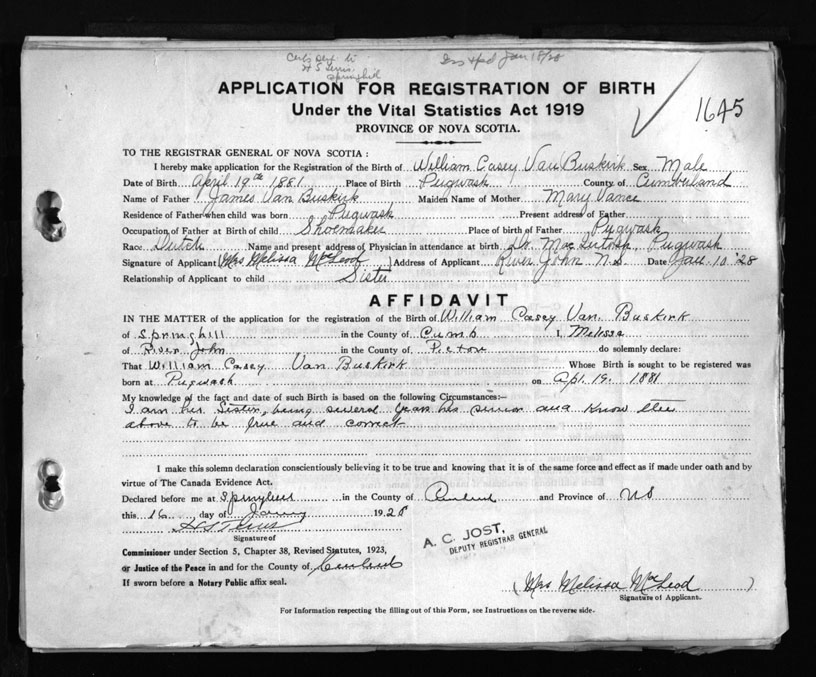 Certs
Springhill
Jan 18/28
APPLICATION FOR REGISTRATION OF BIRTH
1645
Under the Vital Statistics Act 1919
PROVINCE OF NOVA SCOTIA.
TO THE REGISTRAR GENERAL OF NOVA SCOTIA:
I hereby make application for the Registration of the Birth of William Casey Van Buskirk Sex Male
Date of Birth April 19th 1881 Place of Birth Pugwash County of Cumberland
Name of Father James Van Buskirk Maiden Name of Mother Mary Vance
Residence of Father when child was born Pugwash Present address of Father
Occupation of Father at Birth of child Shoemaker Place of birth of Father Pugwash
Race Dutch Name and present address of Physician in attendance at birth Dr. MacIntosh, Pugwash
Signature of Applicant (Mrs Melissa McLeod) Address of Applicant River John N.S Date Jan. 10 '28
Relationship of Applicant to child Sister
AFFIDAVIT
IN THE MATTER of the application for the registration of the Birth of William Casey Van Buskirk
of Springhill in the County of Cumb I, Melissa
of River John in the County of Pictou do solemnly declare:
That William Casey Van Buskirk Whose Birth is sought to be registered was
born at Pugwash on Apl. 19. 1881
My knowledge of the fact and date of such Birth is based on the following Circumstances:—
I am his Sister, being several years his senior and know the
above to be true and correct
I make this solemn declaration conscientiously believing it to be true and knowing that it is of the same force and effect as if made under oath and by
virtue of The Canada Evidence Act.
Declared before me at Springhill in the County of Cumberland and Province of NS
this 16 day of January 1928
Signature of
A. C. JOST,
DEPUTY REGISTRAR GENERAL
Commissioner under Section 5, Chapter 38, Revised Statutes, 1923,
or Justice of the Peace in and for the County of Cumberland
If sworn before a Notary Public affix seal.
(Mrs Melissa McLeod)
Signature of Applicant.
For Information respecting the filling out of this Form, see Instructions on the reverse side.